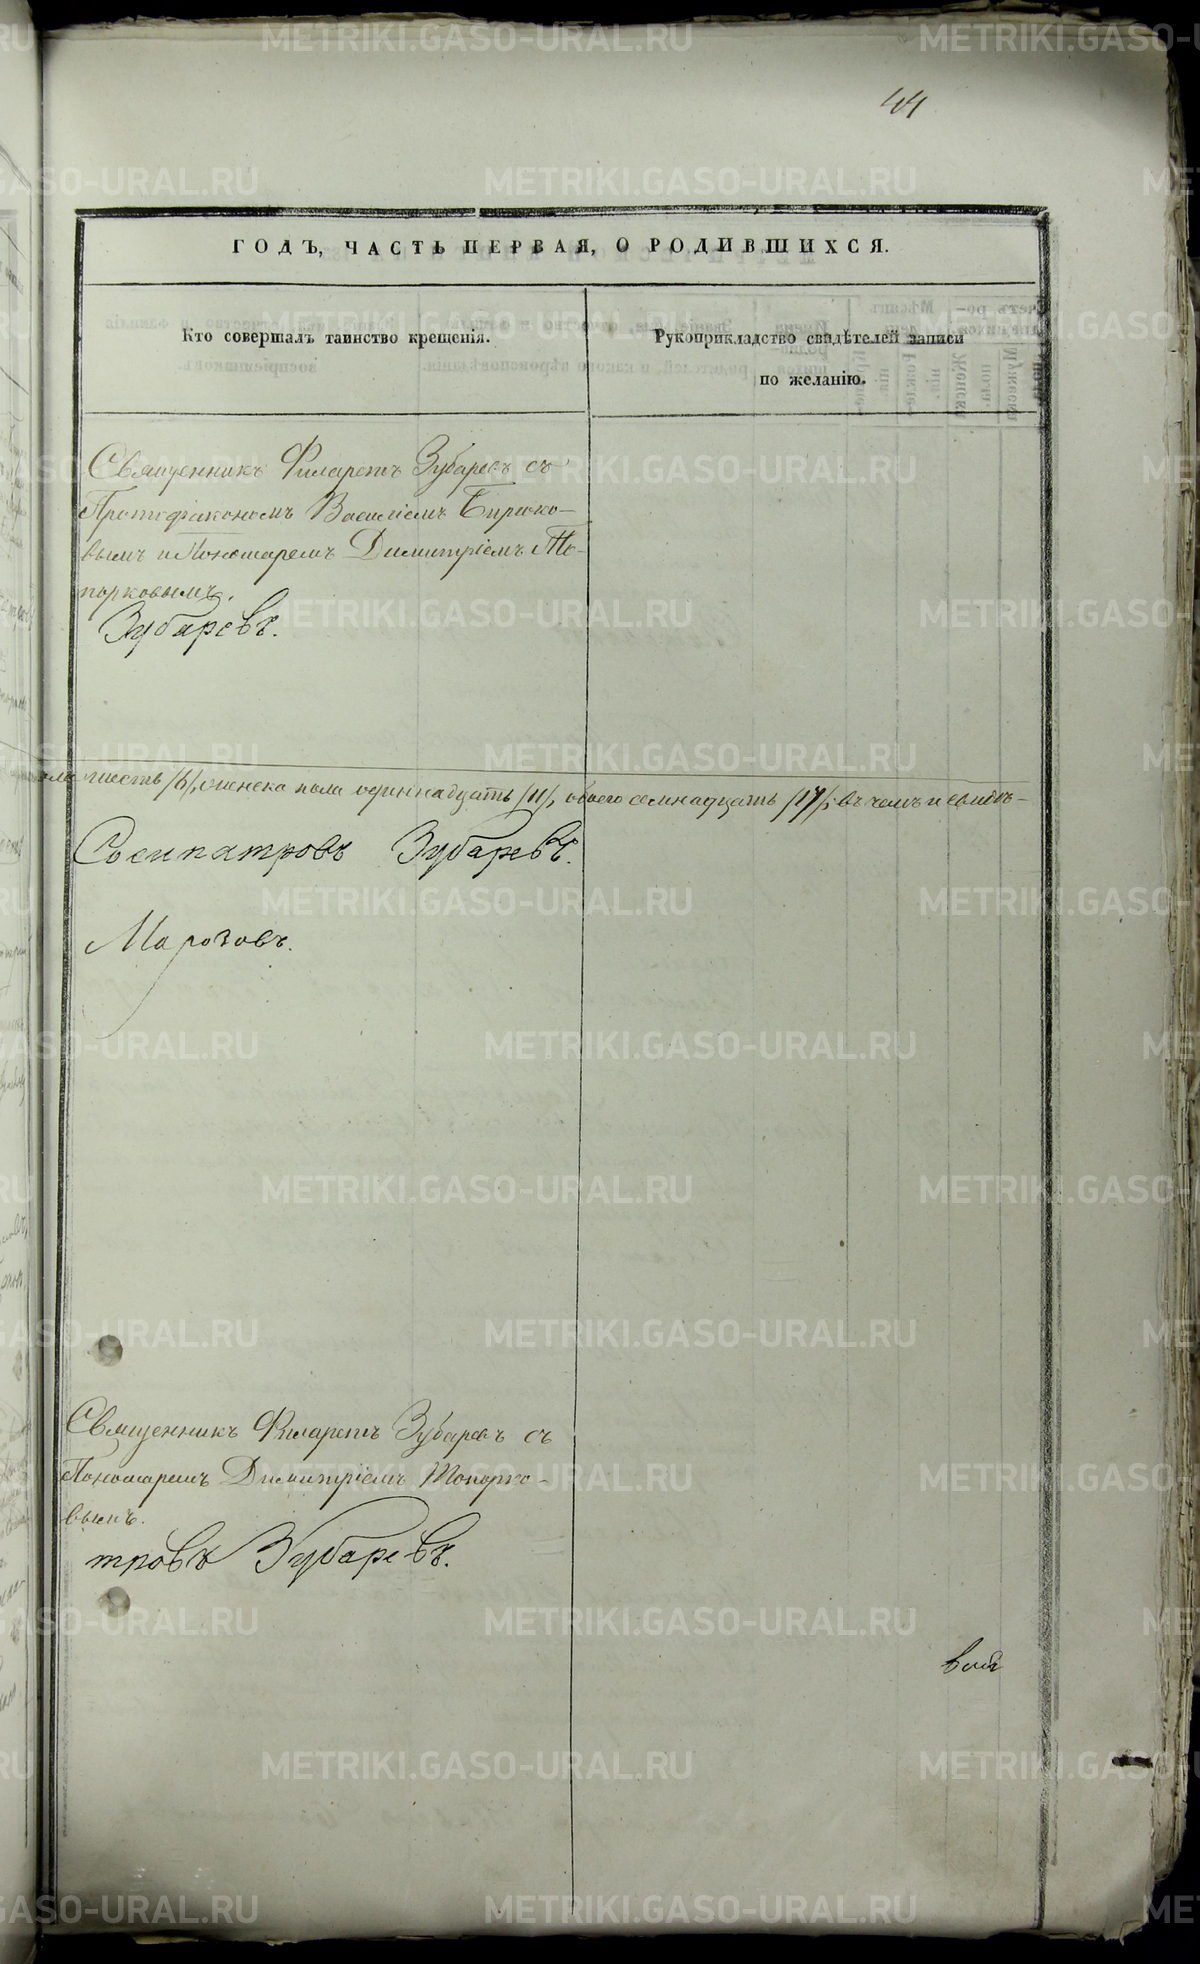 44
ГОДЪ, ЧАСТЬ ПЕРВАЯ, О РОДИВШИХСЯ.
Кто совершалъ таинство крещенія.
Рукоприкладство свидѣтелей записи
по желанію.
Священникъ Филаретъ Зубаревъ съ
Протодіакономъ Василіемъ Бирюко-
вымъ и Пономаремъ Димитріемъ То-
порковымъ.
Зубаревъ.
шесть /6/, женска пола одиннадцать /11/, обоего семнадцать /17/; въ чемъ и свидѣ-
Сосипатровъ Зубаревъ.
Марозовъ.
Священникъ Филаретъ Зубаревъ съ
Пономаремъ Димитріемъ Топорко-
вымъ.
тровъ Зубаревъ.
METRIKI.GASO-URAL.RU